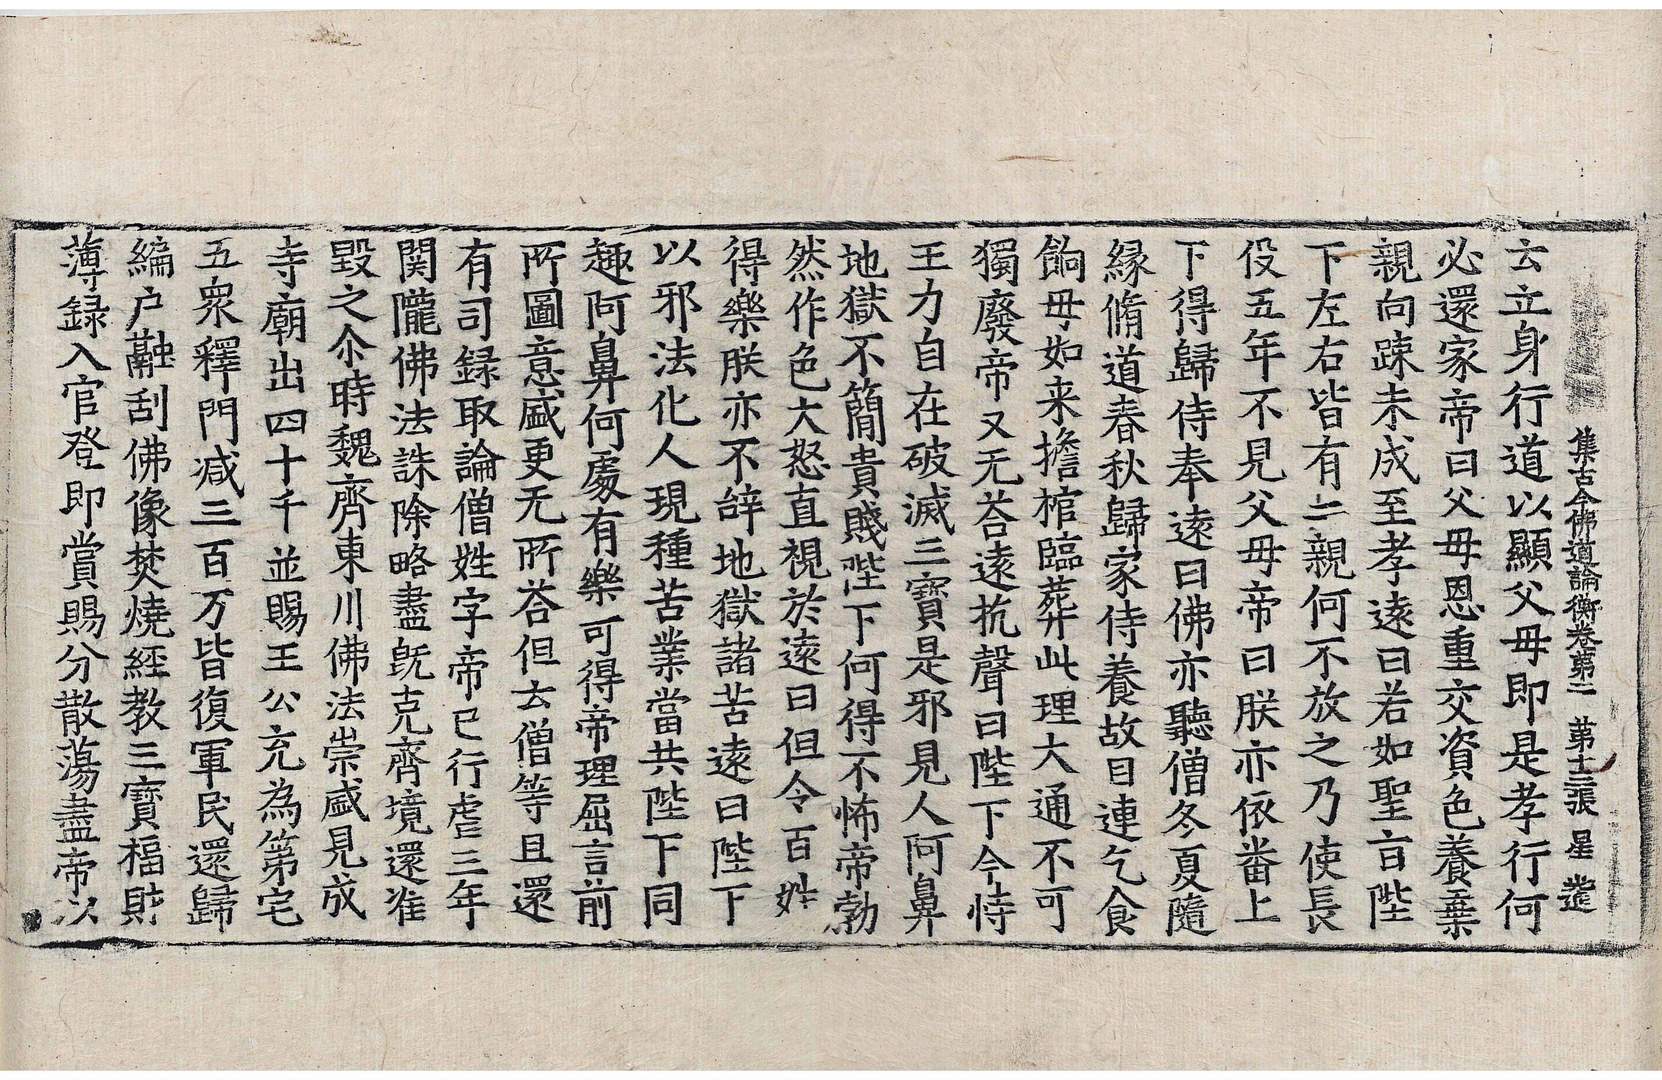 集古今佛道論衡卷第二　第十三張　星
云立身行道以顯父母即是孝行何
必還家帝曰父母恩重交資色養棄
親向踈未成至孝遠曰若如聖言陛
下左右皆有二親何不放之乃使長
役五年不見父母帝曰朕亦依番上
下得歸侍奉遠曰佛亦聽僧冬夏隨
緣脩道春秋歸家侍養故目連乞食
餉母如来擔棺臨葬此理大通不可
獨廢帝又无荅遠抗聲曰陛下今恃
王力自在破滅三寶是邪見人阿鼻
地獄不簡貴賤陛下何得不怖帝勃
然作色大怒直視於遠曰但令百姓
得樂朕亦不辞地獄諸苦遠曰陛下
以邪法化人現種苦業當共陛下同
趣阿鼻何處有樂可得帝理屈言前
所圖意盛更无所荅但云僧等且還
有司録取論僧姓字帝已行虐三年
関隴佛法誅除略盡既克齊境還准
毀之尒時魏齊東川佛法崇盛見成
寺廟出四十千並賜王公充為第宅
五衆釋門减三百万皆復軍民還歸
編户融刮佛像焚燒經教三寶福財
薄録入官登即賞賜分散蕩盡帝以